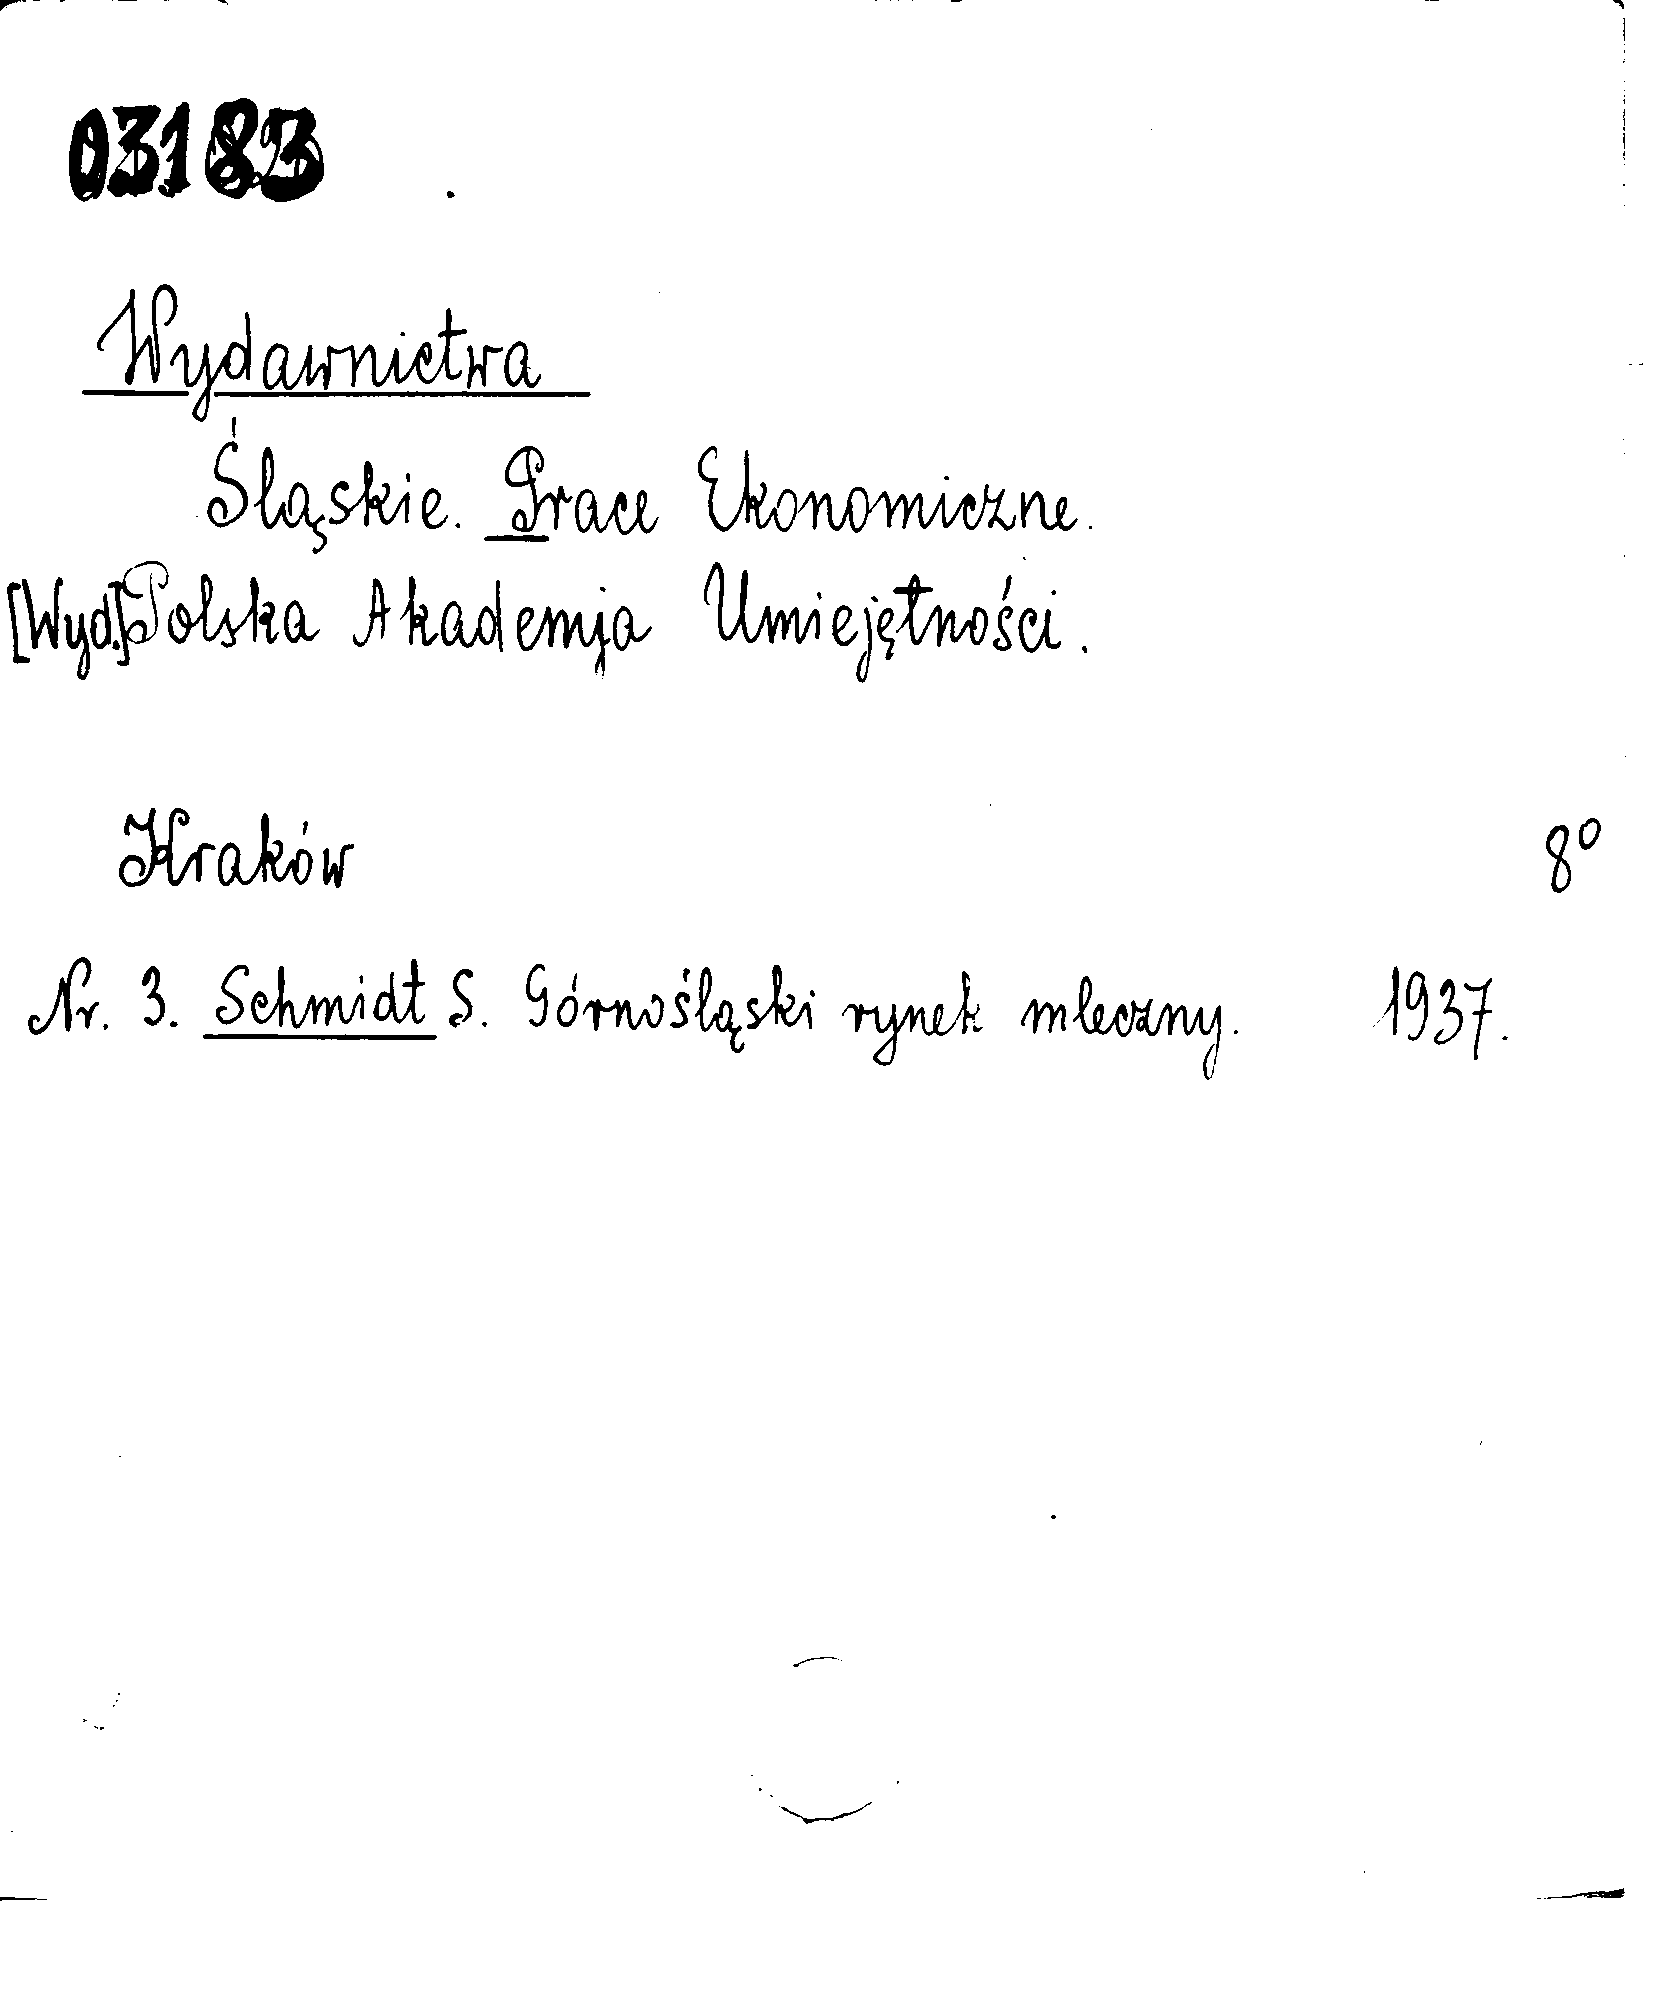 03183
Wydawnictwa
Śląskie. Prace Ekonomiczne.
[Wyd.] Polska Akademja Umiejętności.
Kraków 8°
Nr. 3. Schmidt S. Górnośląski rynek mleczny. 1937.